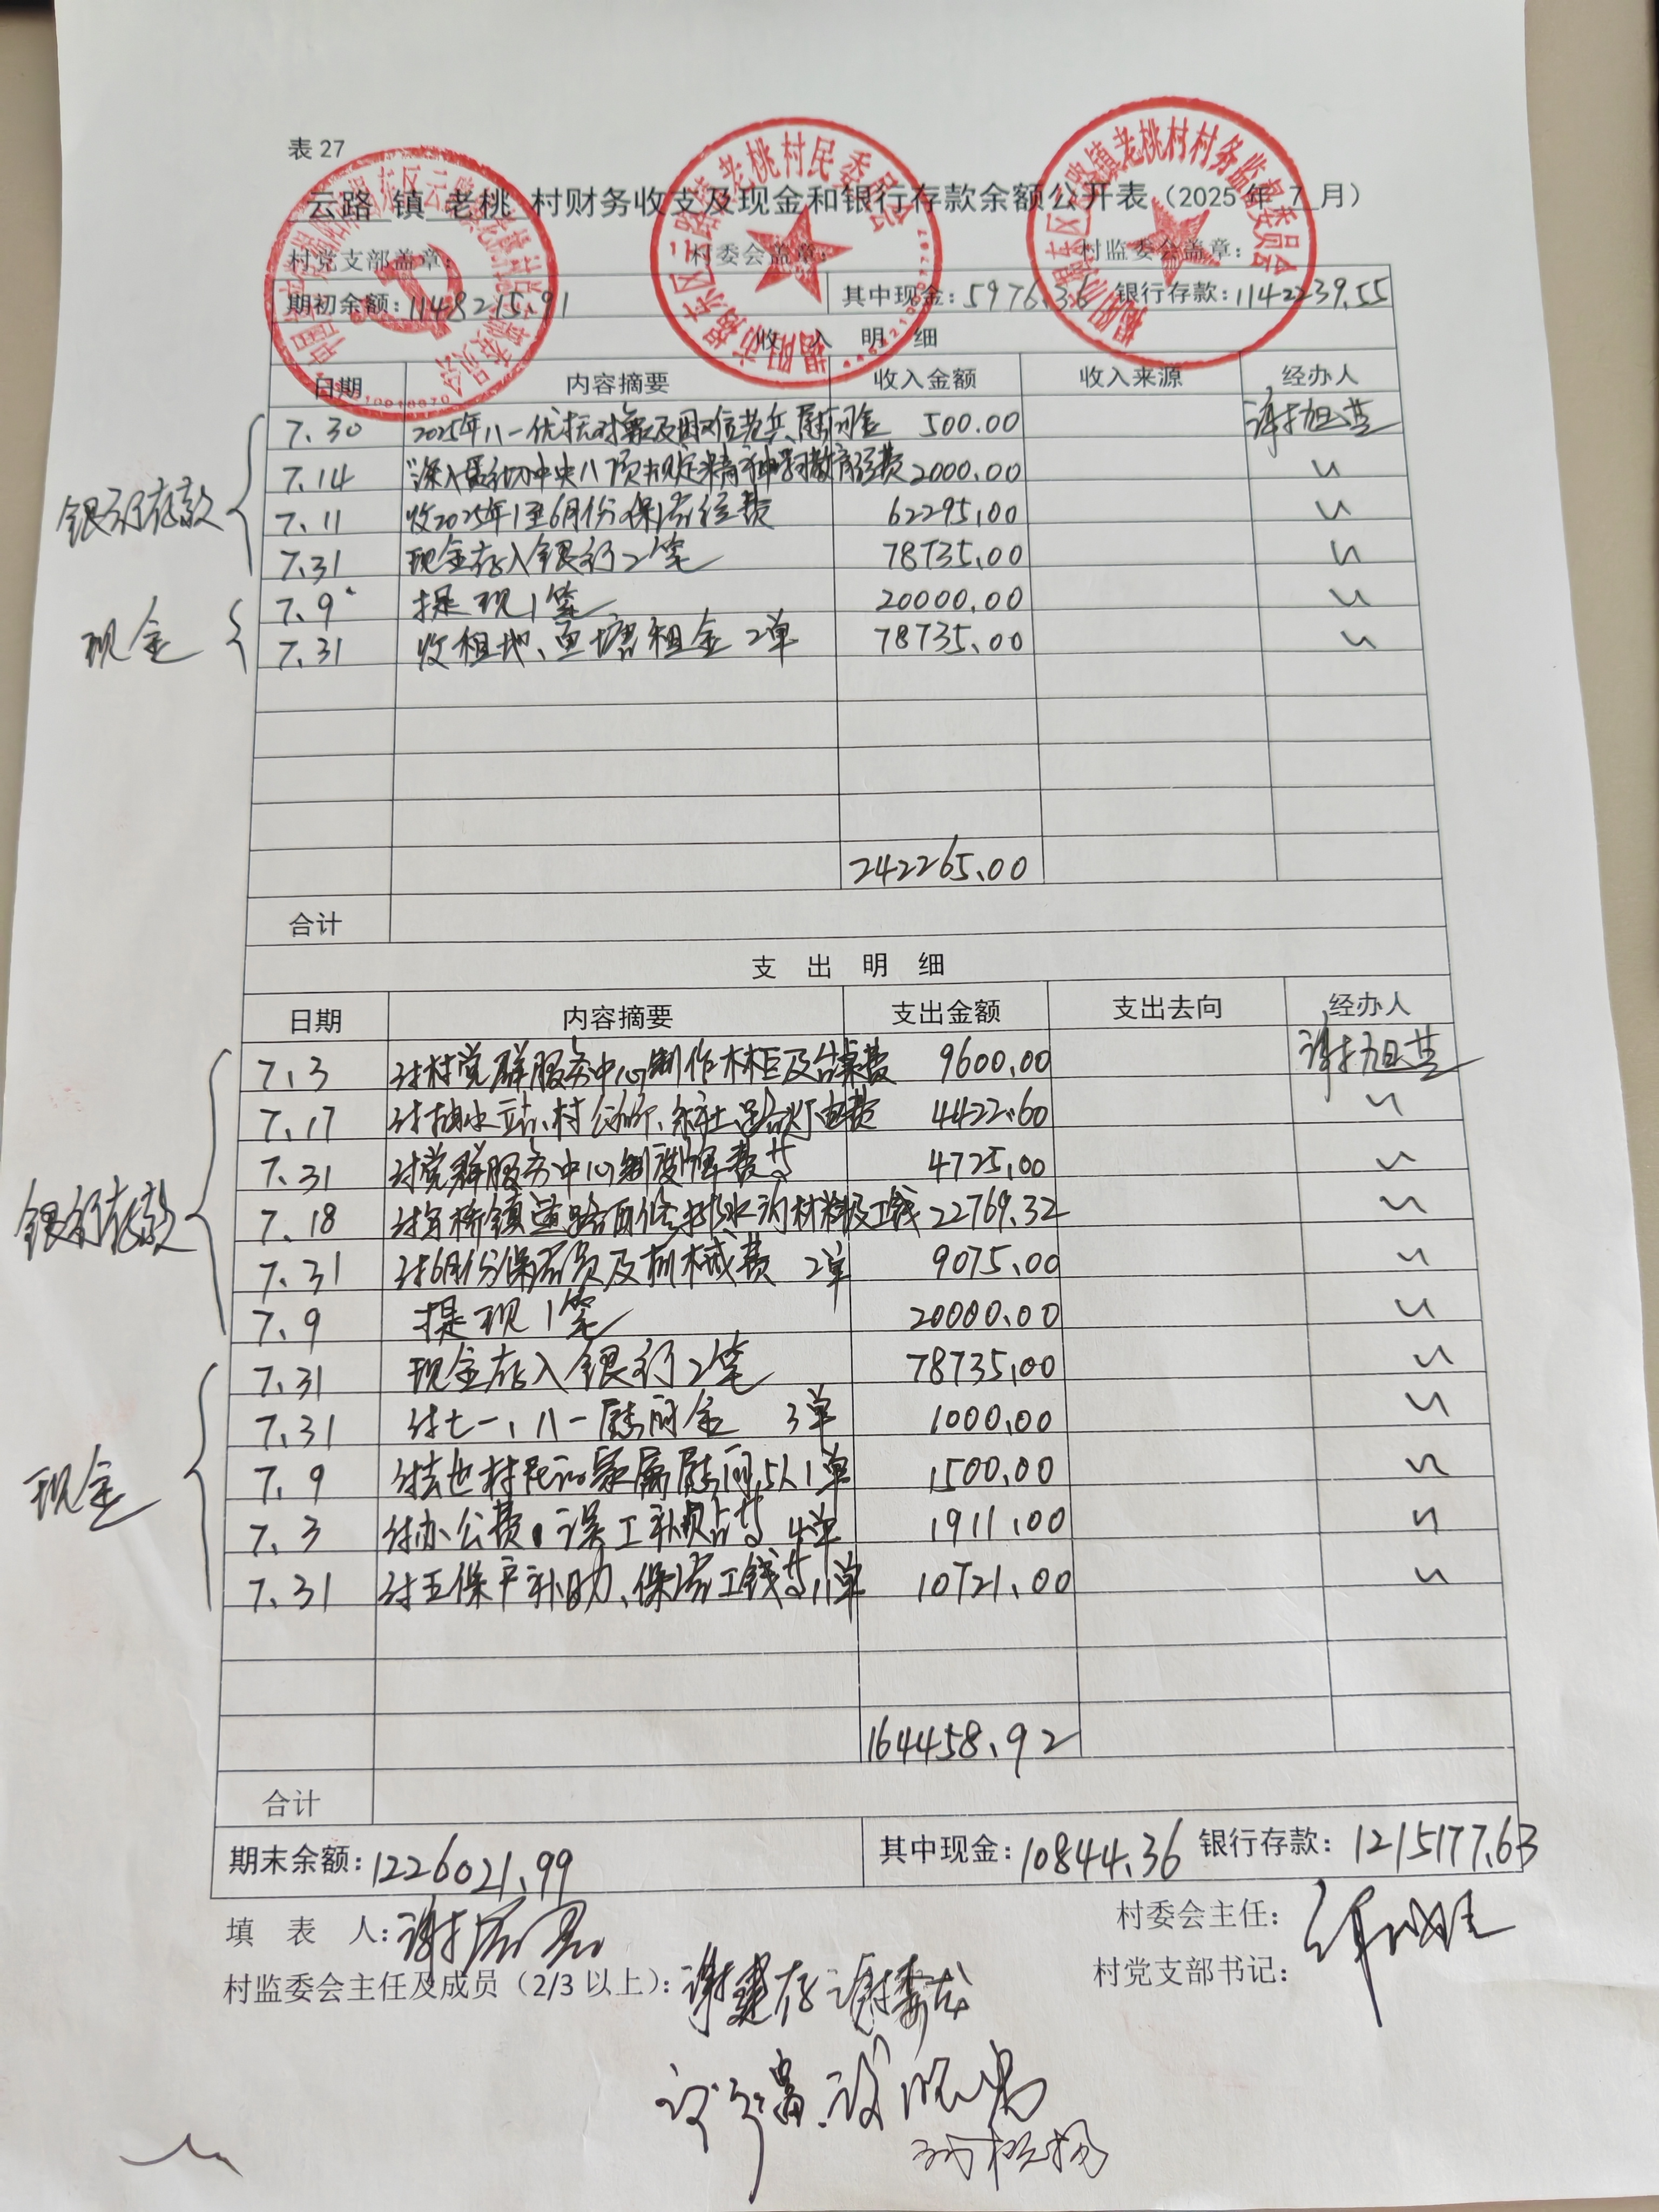 表 27
云路 镇 老桃 村财务收支及现金和银行存款余额公开表（2025 年 7 月）
村党支部盖章： 村委会盖章： 村监委会盖章：
期初余额：1148215.91 其中现金：5976.36 银行存款：1142239.55
收 入 明 细
日期 内容摘要 收入金额 收入来源 经办人
银行存款
7.30 2025年八一优抚对象及困难退老兵、慰问金 500.00
7.14 "深入贯彻中央八项规定精神学习教育经费 2000.00 〃
7.11 收2025年1至6月份保洁经费 62295.00 〃
7.31 现金存入银行2笔 78735.00 〃
现金
7.9 提现1笔 20000.00 〃
7.31 收租地、鱼塘租金 2单 78735.00 〃
242265.00
合计
支 出 明 细
日期 内容摘要 支出金额 支出去向 经办人
银行存款
7.3 付村党群服务中心制作木柜及台桌费 9600.00
7.17 付抽水站、村公所、路灯电费 4422.60 〃
7.31 付党群服务中心制度牌费 4725.00 〃
7.18 付桥镇道路面修排水沟材料及工钱 22769.32 〃
7.31 付6月份保洁员及机械费 2单 9075.00 〃
7.9 提现1笔 20000.00 〃
现金
7.31 现金存入银行2笔 78735.00 〃
7.31 付七一、八一慰问金 3单 1000.00 〃
7.9 付去世村民家属慰问,5人1单 1500.00 〃
7.3 付办公费、误工补贴等 4单 1911.00 〃
7.31 付五保户补助、保洁工钱等,11单 10721.00 〃
164458.92
合计
期末余额：1226021.99 其中现金：10844.36 银行存款：1215177.63
填 表 人： 村委会主任：
村监委会主任及成员（2/3 以上）：谢建存 村党支部书记：